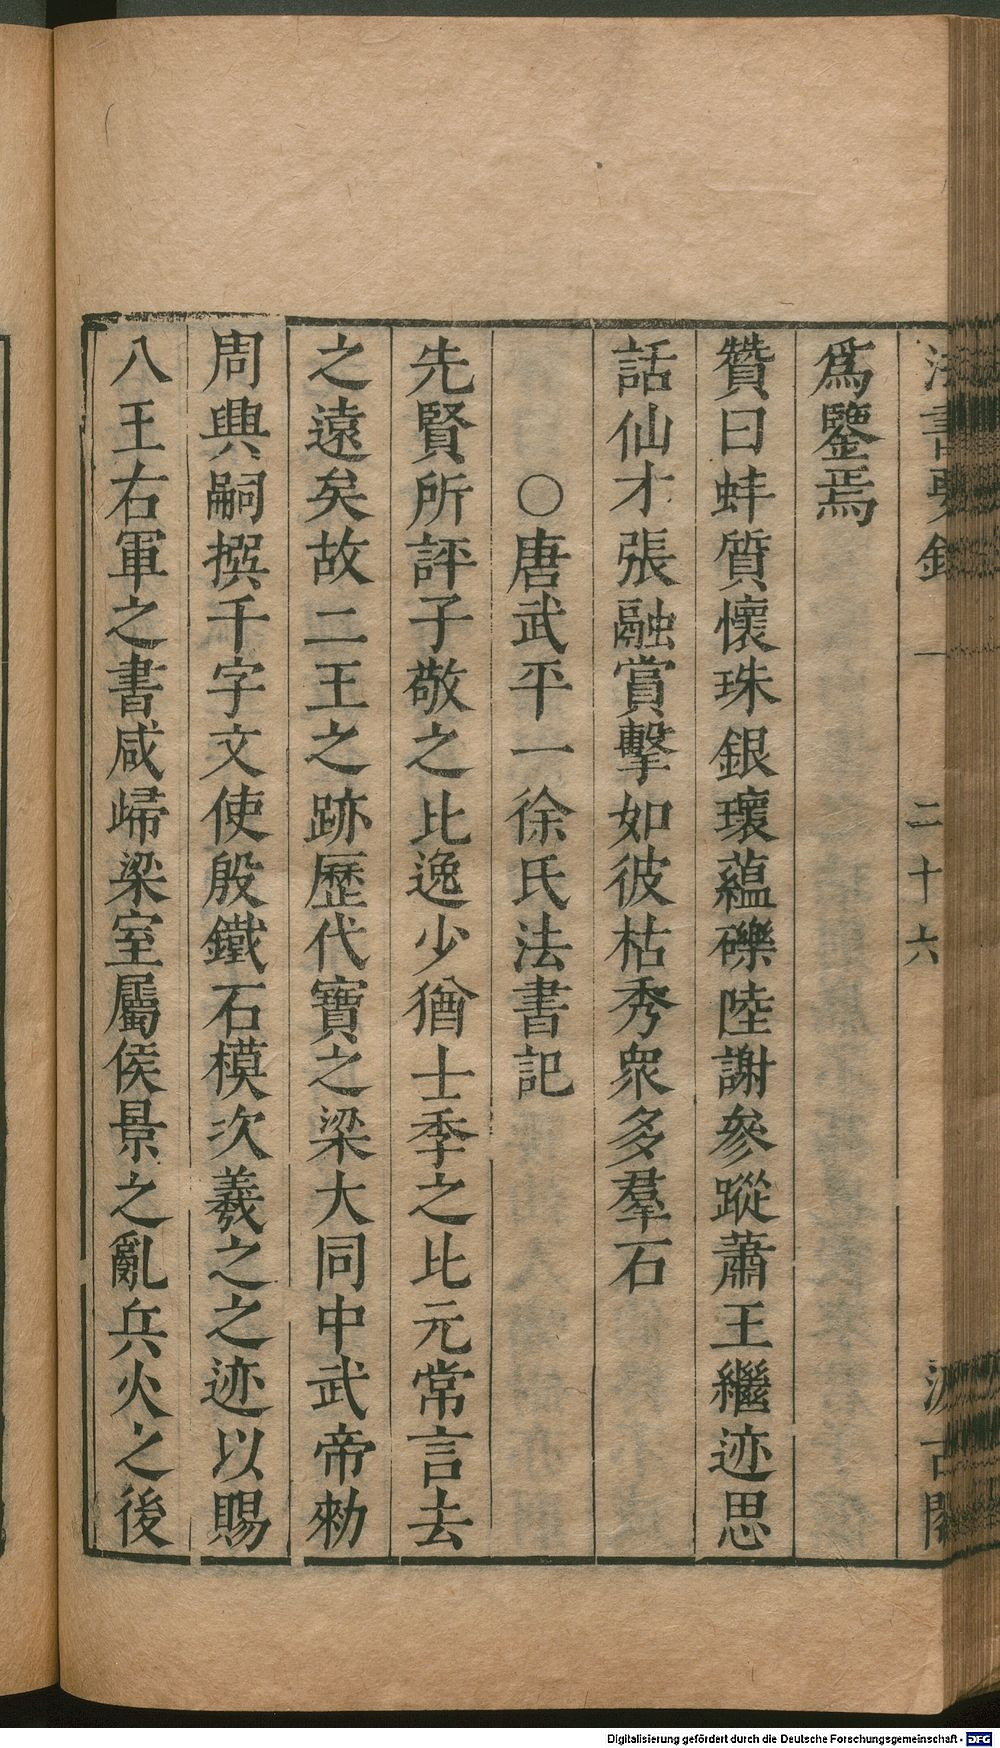 法書要錄 一 二十六 汲古閣
爲鑒焉
贊曰蚌質懷珠銀瓌蘊礫陸謝參蹤蕭王繼迹思
話仙才張融賞擊如彼枯秀衆多羣石
○唐武平一徐氏法書記
先賢所評子敬之比逸少猶士季之比元常言去
之遠矣故二王之跡歷代寶之梁大同中武帝勑
周興嗣撰千字文使殷鐵石模次羲之之迹以賜
八王右軍之書咸歸梁室屬侯景之亂兵火之後
Digitalisierung gefördert durch die Deutsche Forschungsgemeinschaft - DFG